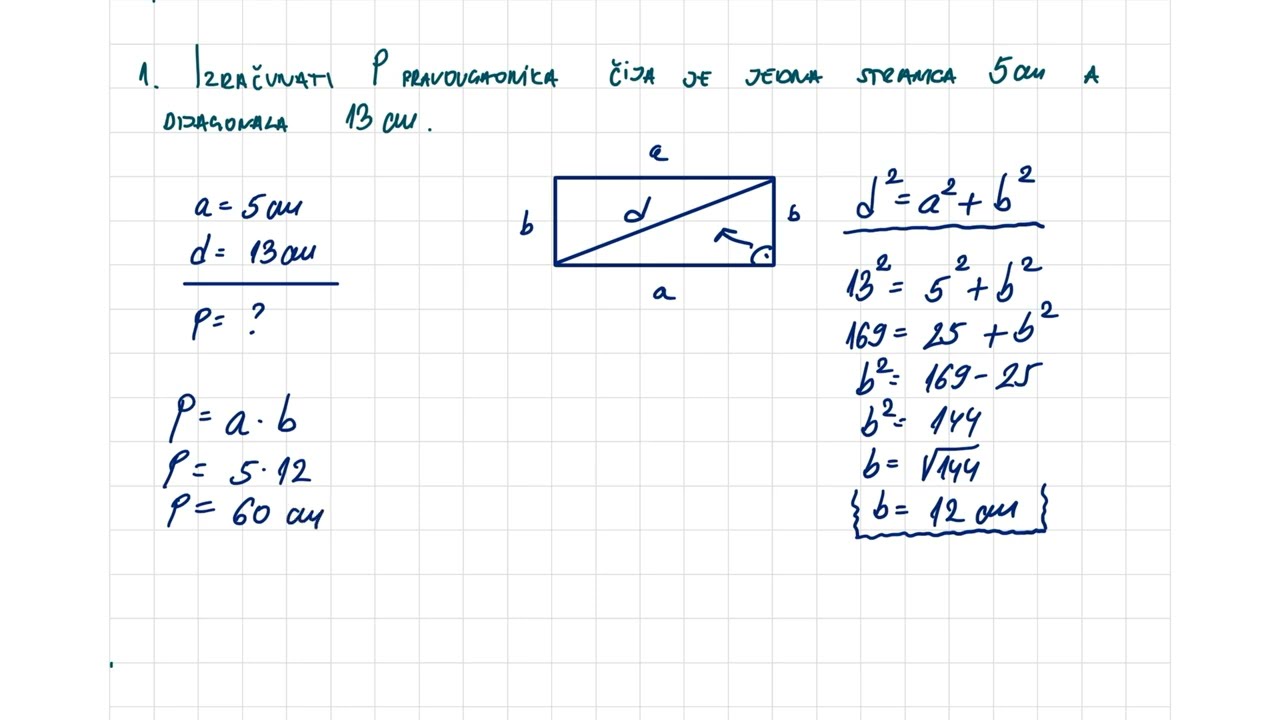 1. IZRAČUNATI P PRAVOUGAONIKA ČIJA JE JEDNA STRANICA 5cm A
DIJAGONALA 13 cm.
a = 5cm
d = 13cm
P = ?
P = a · b
P = 5 · 12
P = 60 cm
a
b
d
b
a
d² = a² + b²
13² = 5² + b²
169 = 25 + b²
b² = 169 - 25
b² = 144
b = √144
{ b = 12 cm }